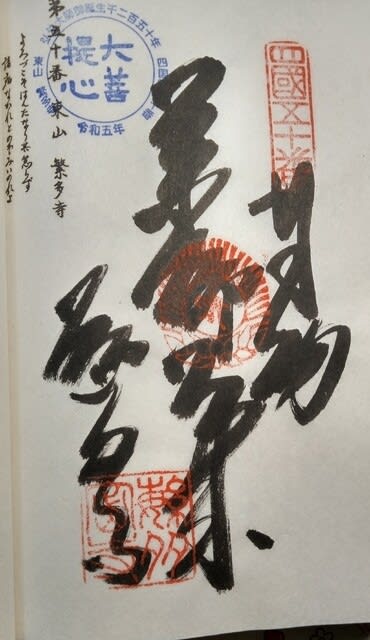 四國五十番
奉納
薬師如来
繁多寺
大菩提心
誕生千二百五十年
令和五年
東山
第五十番 東山 繁多寺
よろづこそはんたなりとも怠らず
諸病なかれとのぞみいのれよ